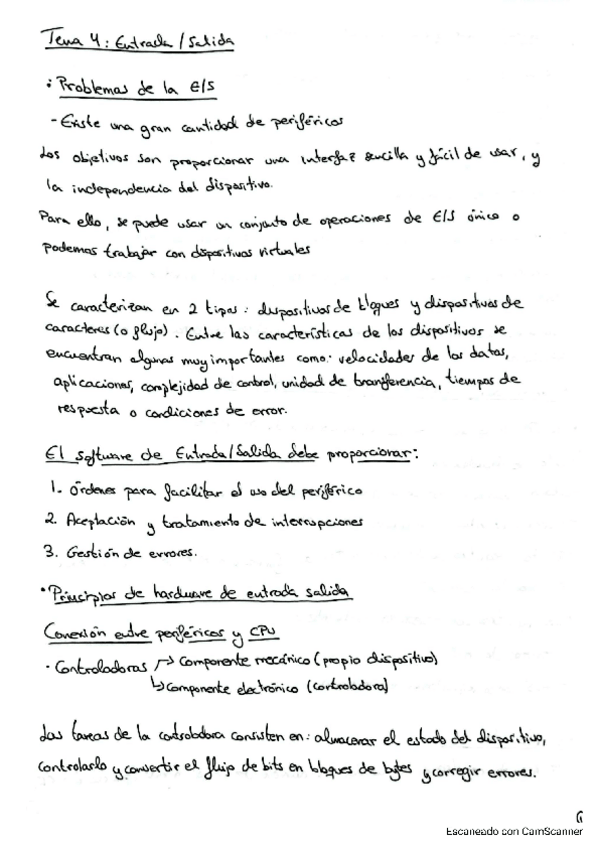 Tema 4: Entrada/Salida
• Problemas de la E/S
- Existe una gran cantidad de periféricos
Los objetivos son proporcionar una interfaz sencilla y fácil de usar, y
la independencia del dispositivo.
Para ello, se puede usar un conjunto de operaciones de E/S único o
podemos trabajar con dispositivos virtuales
Se caracterizan en 2 tipos: dispositivos de bloques y dispositivos de
caracteres (o flujo). Entre las características de los dispositivos se
encuentran algunas muy importantes como: velocidades de los datos,
aplicaciones, complejidad de control, unidad de transferencia, tiempos de
respuesta o condiciones de error.
El software de Entrada/Salida debe proporcionar:
1. Órdenes para facilitar el uso del periférico
2. Aceptación y tratamiento de interrupciones
3. Gestión de errores.
• Principios de hardware de entrada salida
Conexión entre periféricos y CPU
- Controladoras → Componente mecánico (propio dispositivo)
↳ Componente electrónico (controladora)
Las tareas de la controladora consisten en: almacenar el estado del dispositivo,
controlarlo y convertir el flujo de bits en bloques de bytes y corregir errores.
Escaneado con CamScanner